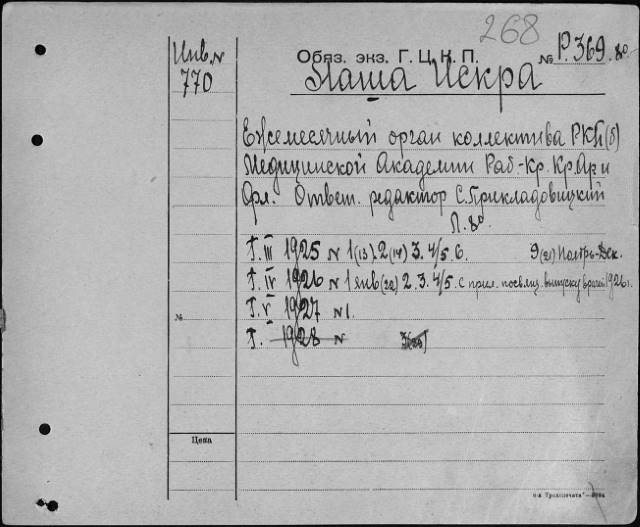 268
Инв. №
770
Обяз. экз. Г. Ц. К. П. № Р.369.8°
Наша Искра
Ежемесячный орган коллектива РКП(б)
Медицинской Академии Раб.-Кр. Кр. Ар. и
Фл. Ответ. редактор С. Прикладовицкий
Л. 8°
Г. III 1925 № 1(13). 2(14) 3. 4/5. 6. 9(21) Ноябрь-Дек.
Г. IV 1926 № 1 янв(22) 2. 3. 4/5. с прил. посвящ. выпуску врачей 1926 г.
Г. V 1927 № 1.
№
Г. 1928 №
Цена